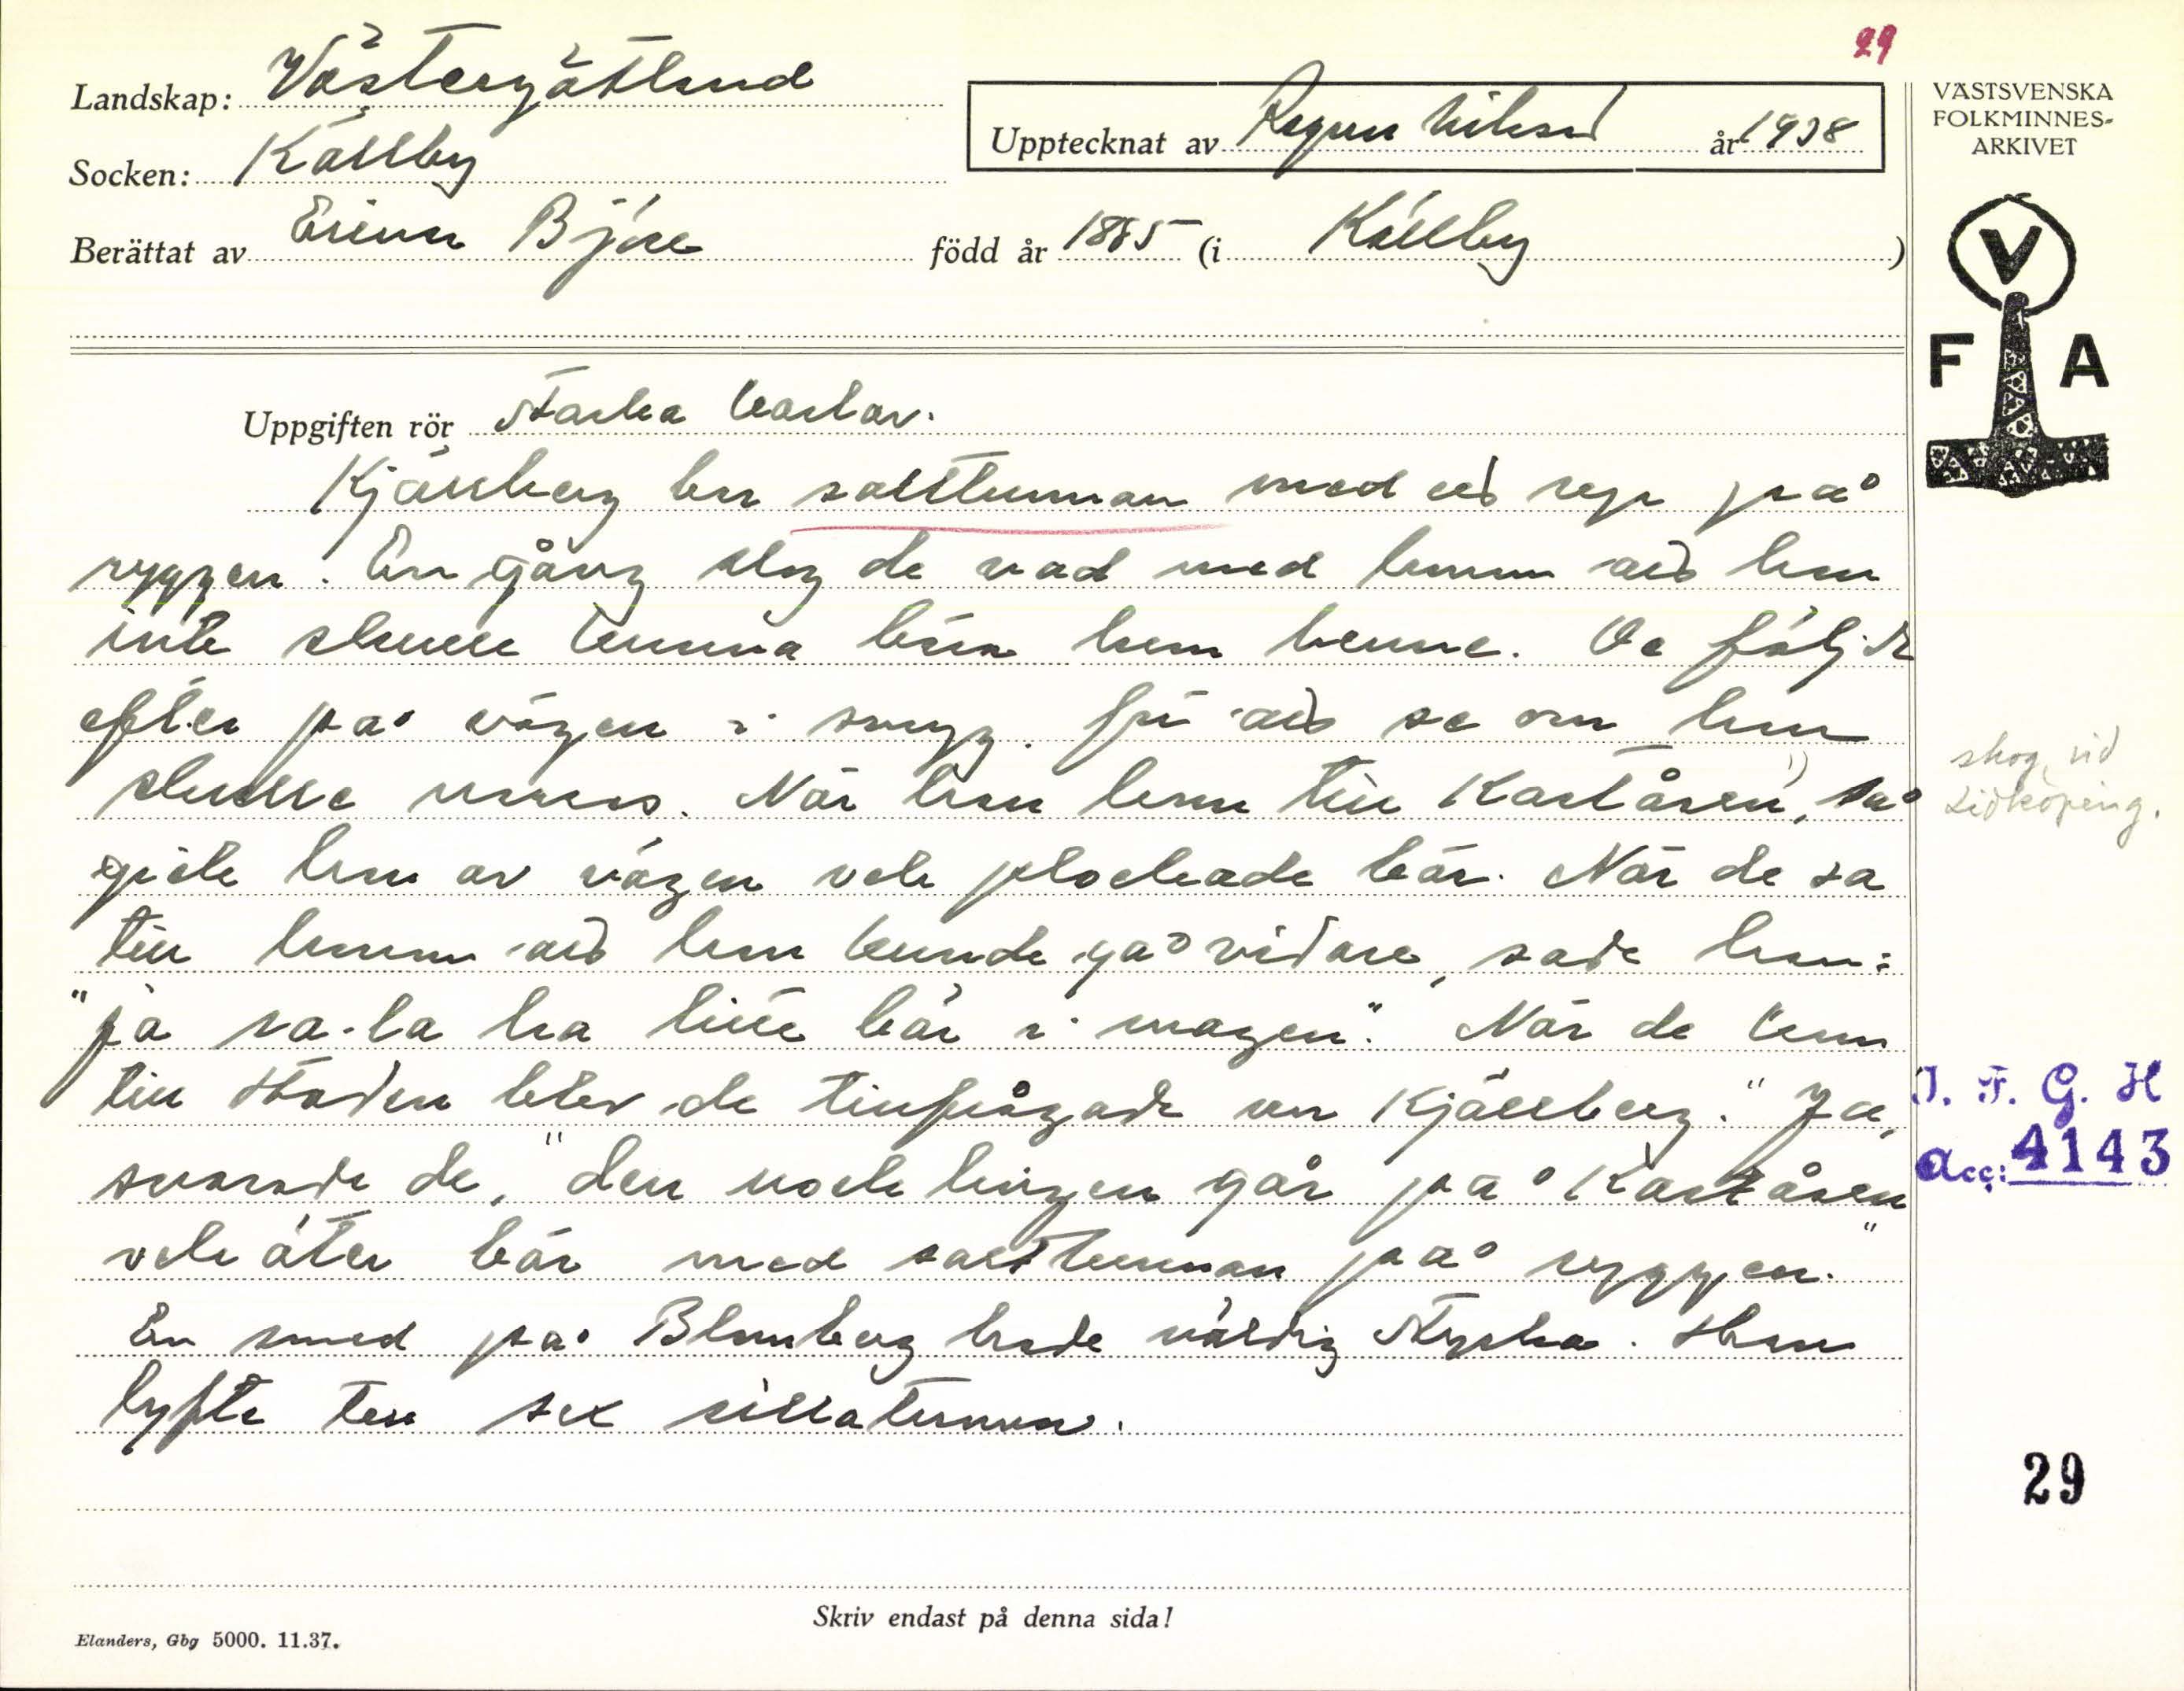 29
Landskap: Västergötland
Socken: Källby
Berättat av Erik Björe
Upptecknat av Ragnar Nilsson år 1938
född år 1885 (i Källby)
VÄSTSVENSKA
FOLKMINNES-
ARKIVET
V
F A
Uppgiften rör Starka karlar.
Kjällberg bar salttunnan med ett rep på
ryggen. En gång slog de vad med honom att han
inte skulle kunna bära hem henne. De följde
efter på vägen i smyg för att se om han
skulle vila. När han kom till Kartåsen 1), så
gick han av vägen och plockade bär. När de sa
till honom att han kunde gå vidare, sade han:
"ja ska la ha lite bär i magen". När de kom
till staden blev de tillfrågade om Kjällberg. "Ja,
svarade de, "den kocklingen går på Kartåsen
och äter bär med salttunnan på ryggen."
En smed på Blomberg hade väldig styrka. Han
lyfte sex sillatunnor.
skog vid
Lidköping.
I. F. G. H
Acc: 4143
29
Skriv endast på denna sida!
Elanders, Gbg 5000. 11.37.